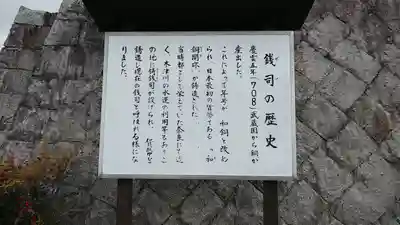 銭司の歴史
慶雲五年(708)武蔵国から銅が
産出した。
これによって年号が「和銅」と改め
られ、日本最初の貨幣である「和
銅開珎」が鋳造された
当時都として栄えていた奈良にも近
く、木津川の水運の利用等もあってこ
の地に鋳銭司が設けられ、貨幣を
鋳造し現在の銭司と呼ばれる様にな
りました。